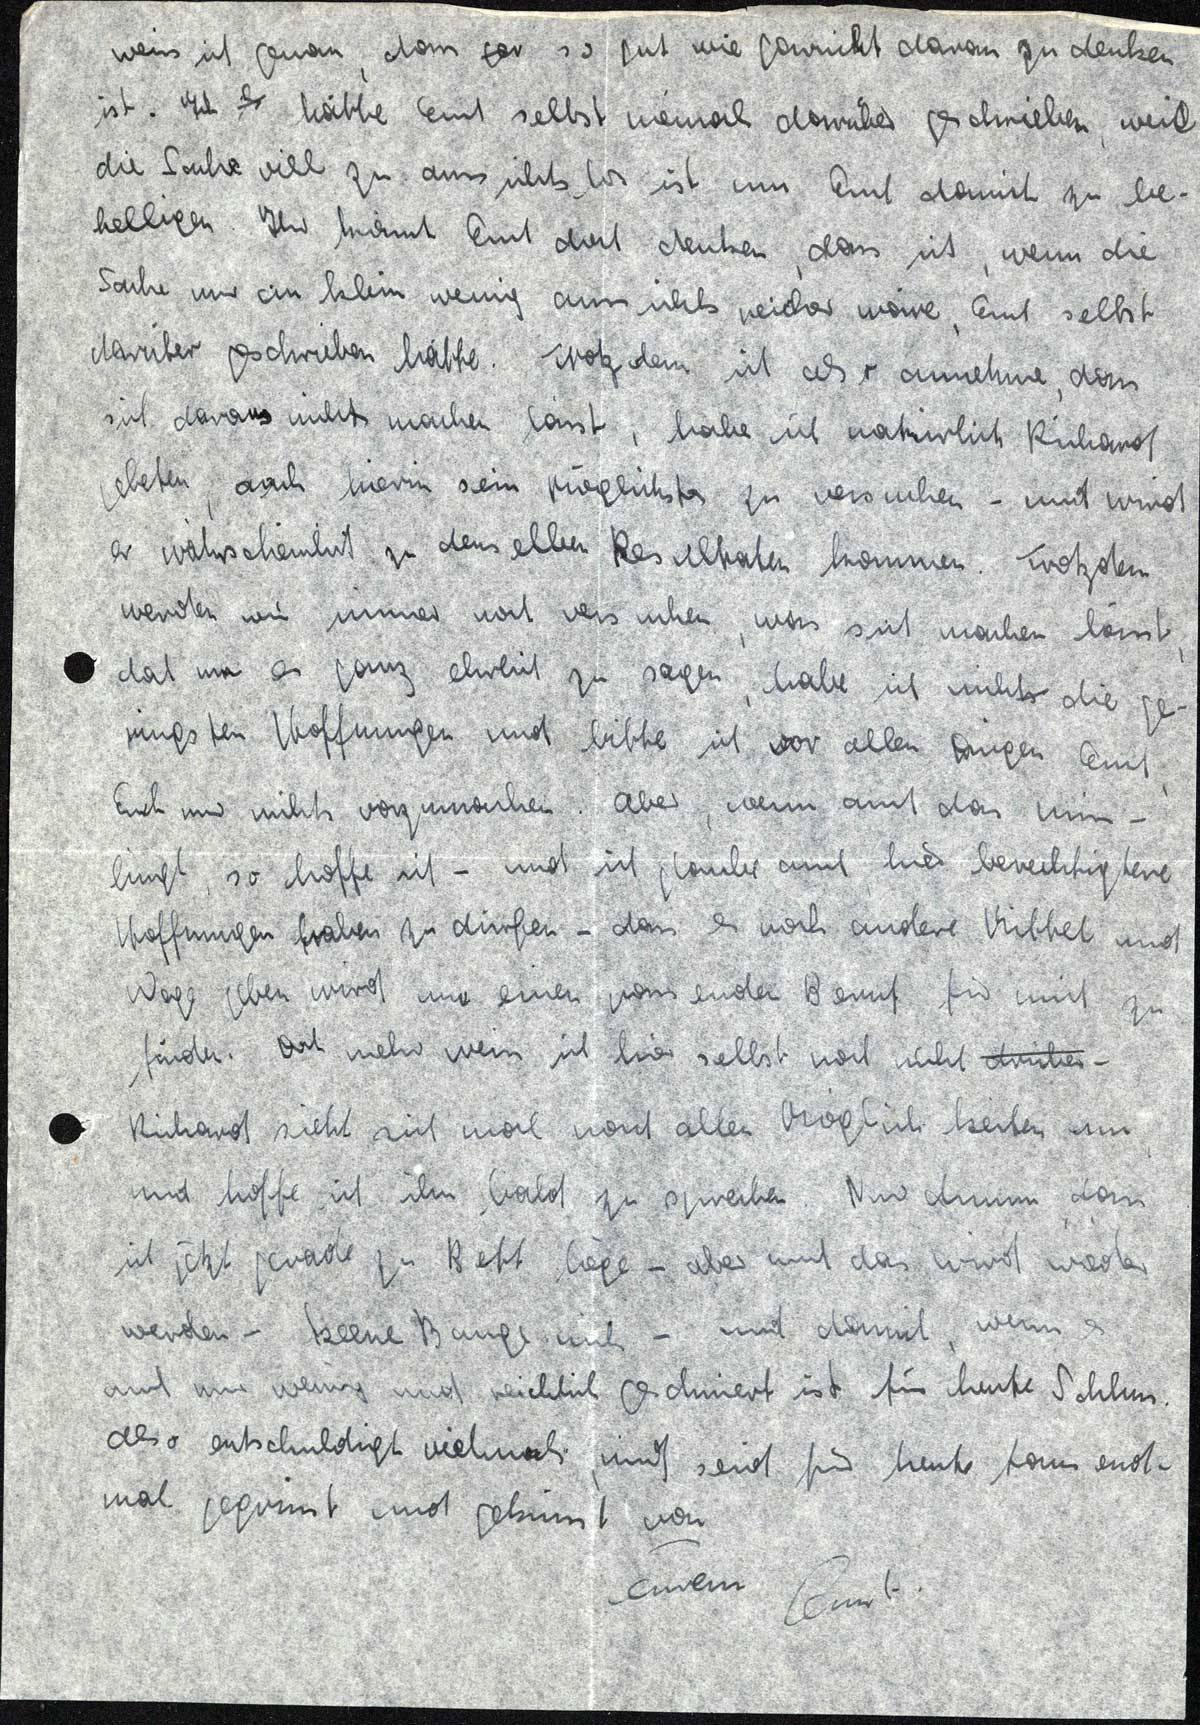 weiss ich genau, dass gar so gut wie garnicht daran zu denken
ist. Ich hätte Euch selbst niemals darüber geschrieben, weil
die Sache viel zu aussichtslos ist um Euch damit zu be-
helligen. Ihr könnt Euch doch denken, dass ich, wenn die
Sache nur ein klein wenig aussichtsreicher wäre, Euch selbst
darüber geschrieben hätte. Trotzdem ich also annehme, dass
sich daraus nichts machen lässt, habe ich natürlich Richard
gebeten, auch hierin sein möglichstes zu versuchen – und wird
er wahrscheinlich zu denselben Resultaten kommen. Trotzdem
werden wir immer noch versuchen, was sich machen lässt,
doch um es ganz ehrlich zu sagen, habe ich nicht die ge-
ringsten Hoffnungen und bitte ich vor allen Dingen Euch,
Euch nur nichts vorzumachen. Aber, wenn auch das miss-
lingt, so hoffe ich – und ich glaube auch hier berechtigtere
Hoffnungen haben zu dürfen – dass es noch andere Mittel und
Wege geben wird um einen passenden Beruf für mich zu
finden. Doch mehr weiss ich hier selbst noch nicht drüber –
Richard sieht sich mal nach allen Möglichkeiten um
und hoffe ich ihn bald zu sprechen. Nur dumm, dass
ich jetzt gerade zu Bett liege – aber auch das wird wieder
werden – keene Bange nich – und damit, wenn es
auch nur wenig und reichlich geschmiert ist für heute Schluss.
Also entschuldigt vielmals und seid für heute tausend-
mal gegrüsst und geküsst von
Eurem Ernst.